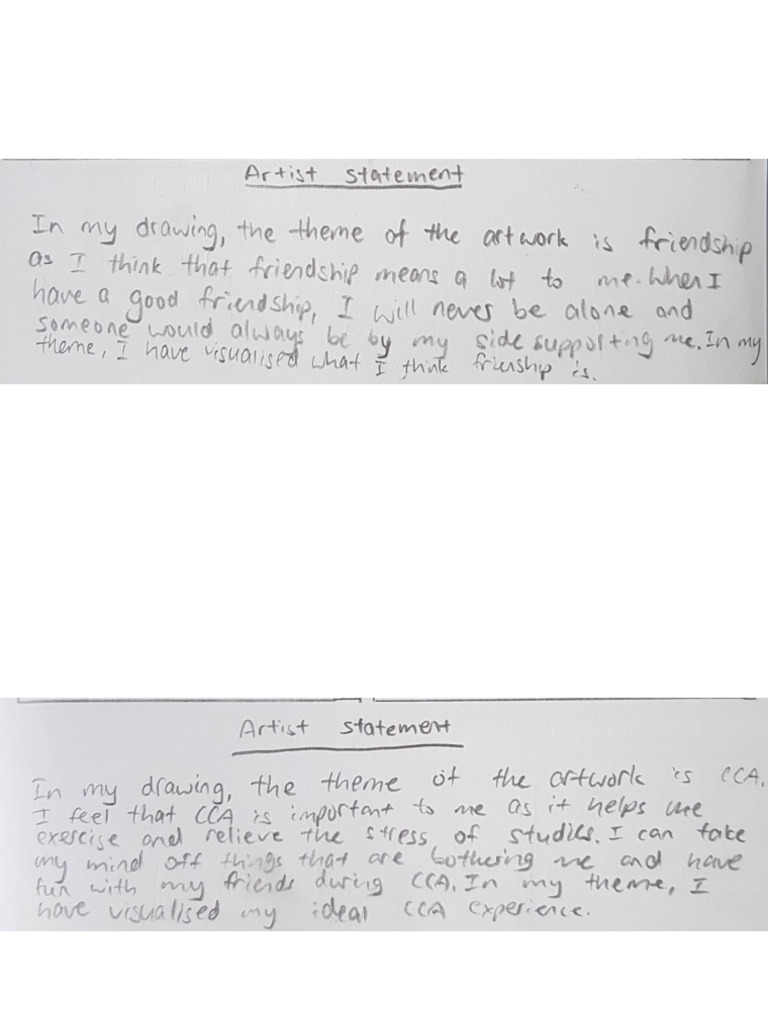 Artist statement
In my drawing, the theme of the artwork is friendship
as I think that friendship means a lot to me. When I
have a good friendship, I will never be alone and
someone would always be by my side supporting me. In my
theme, I have visualised what I think frienship is.
Artist statement
In my drawing, the theme of the artwork is CCA.
I feel that CCA is important to me as it helps me
exercise and relieve the stress of studies. I can take
my mind off things that are bothering me and have
fun with my friends during CCA. In my theme, I
have visualised my ideal CCA experience.